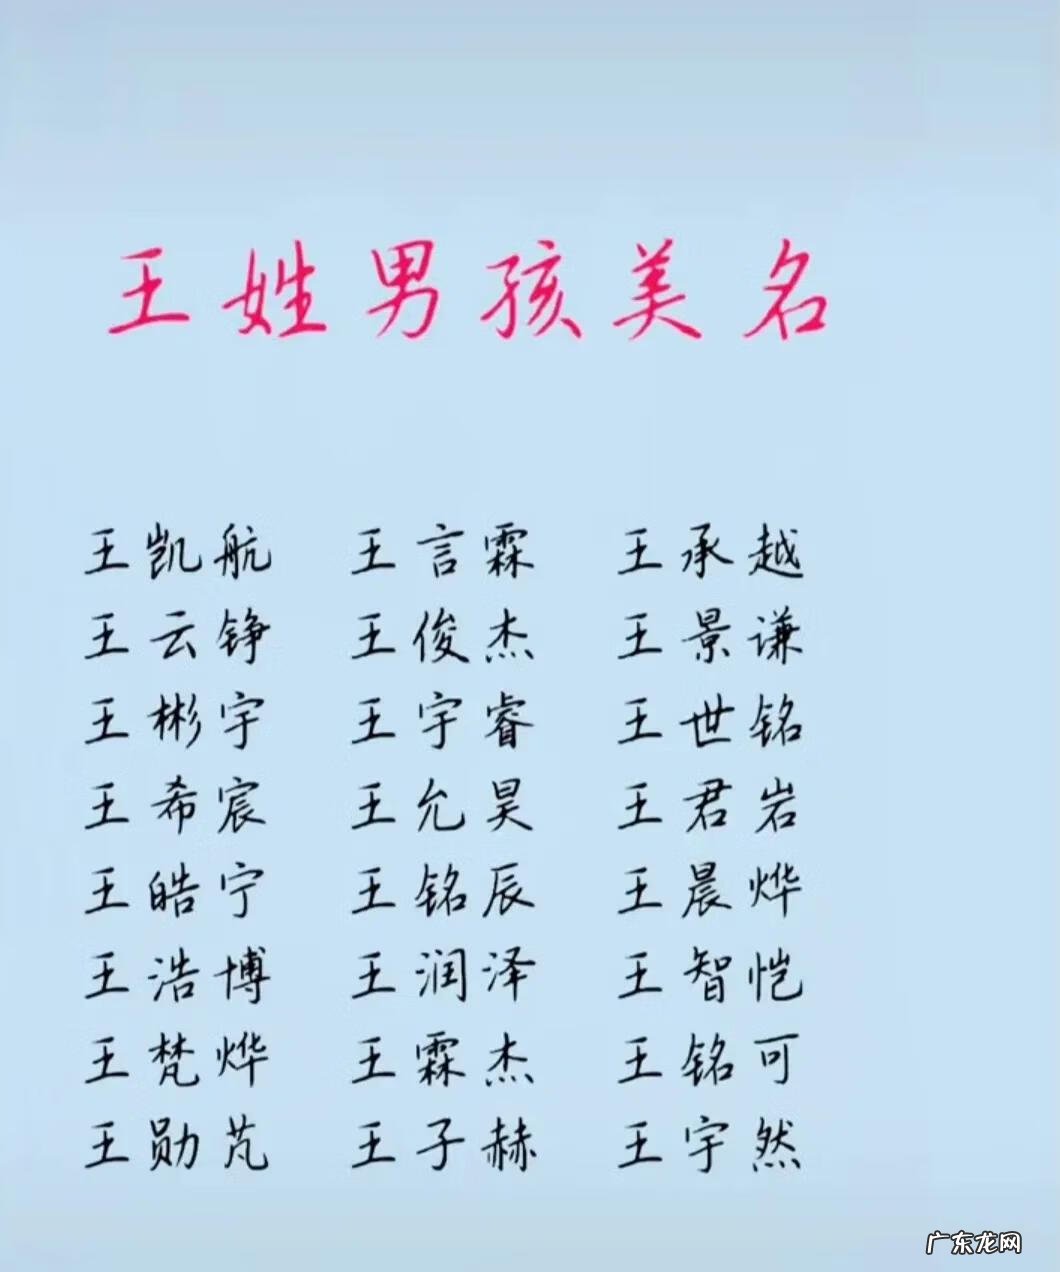 王姓男孩美名
王凯航 王言霖 王承越
王云铮 王俊杰 王景谦
王彬宇 王宇睿 王世铭
王希宸 王允昊 王君岩
王皓宁 王铭辰 王晨烨
王浩博 王润泽 王智恺
王梵烨 王霖杰 王铭可
王勋芃 王子赫 王宇然
广东龙网